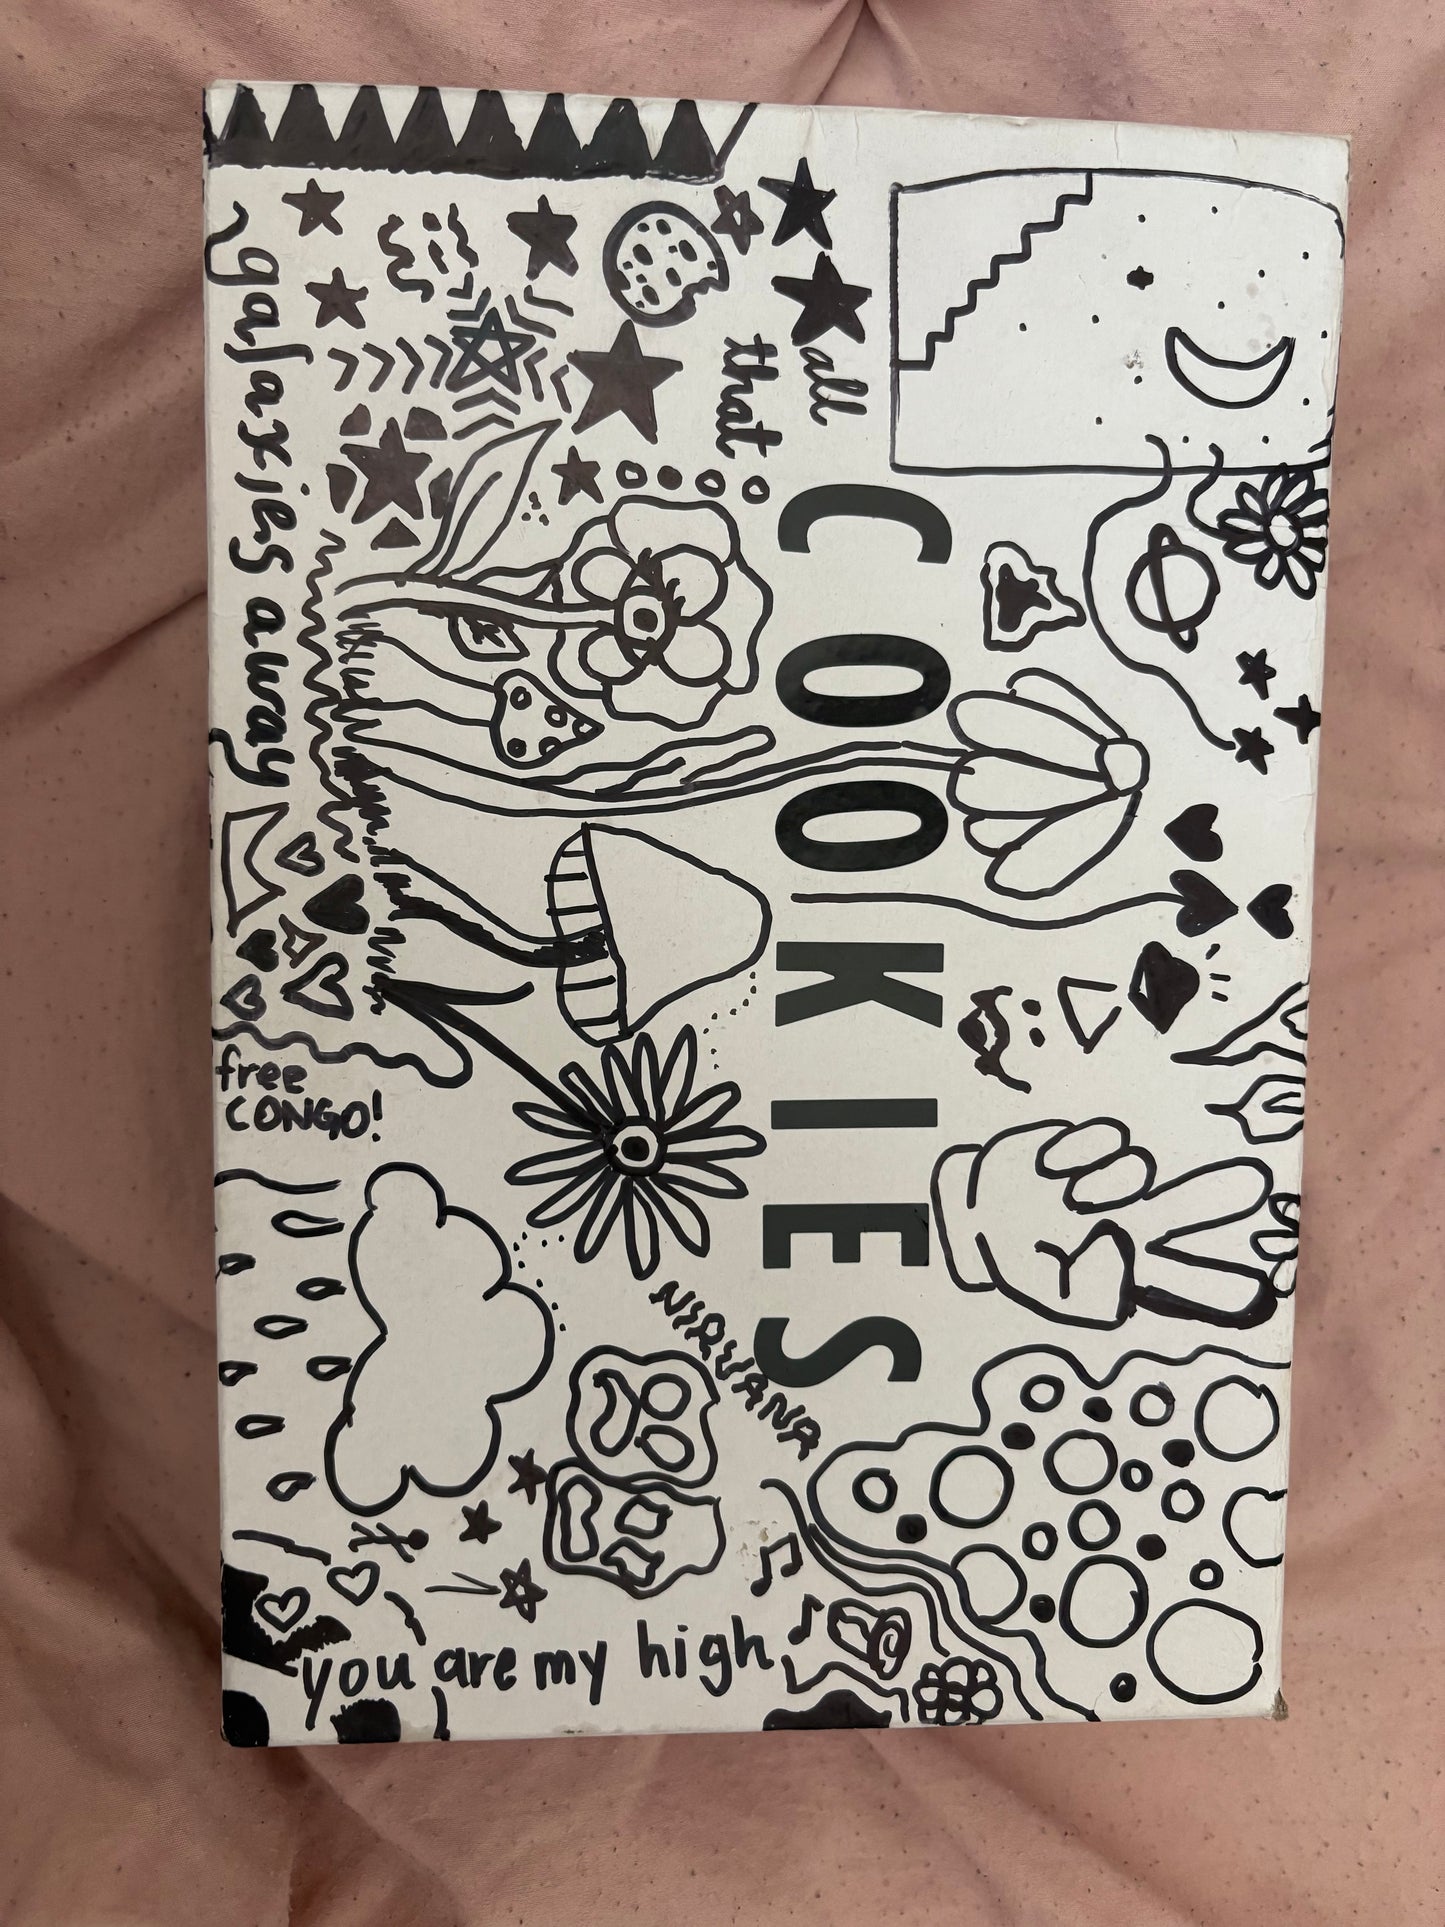 all
that
COOKIES
galaxies away
NIRVANA
free
CONGO!
you are my high